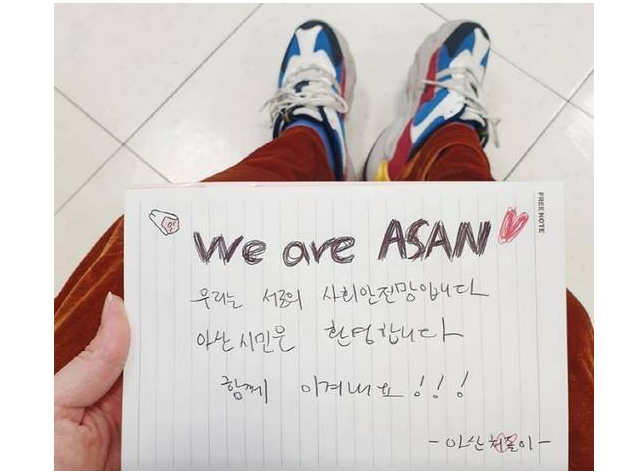 FREE NOTE
We are ASAN
우리는 서로의 사회안전망입니다
아산 시민은 환영합니다
함께 이겨내요!!!
-아산